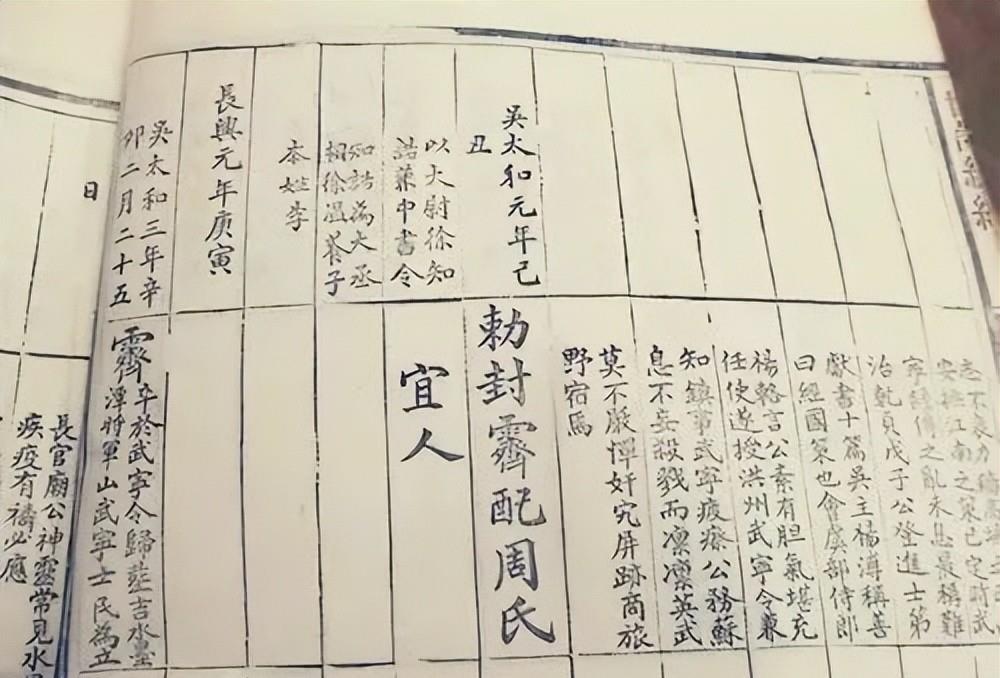 志不衰力
安撫江南之策已定時武
寧之亂未息最稱難
治乾貞戊子公登進士第
獻書十篇吳主楊溥稱善
曰經國策也會虞部侍郎
楊輅言公素有胆氣堪充
任使遂授洪州武寧令兼
知鎮事武寧疲療公務蘇
息不妄殺戮而凜凜英武
莫不嚴憚奸宄屏跡商旅
野宿焉
吳太和元年己
丑
勅封霽配周氏
以大尉徐知
誥兼中書令
宜人
知誥為大丞
相徐溫養子
本姓李
長興元年庚寅
吳太和三年辛
卯二月二十五
日
霽
卒於武寧令歸塟吉水墨
潭將軍山武寧士民為立
長官廟公神靈常見水
疾疫有禱必應